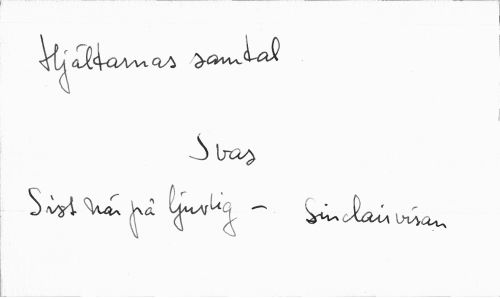 Hjältarnas samtal
Svas
Sist när på ljuvlig – Sinclairvisan